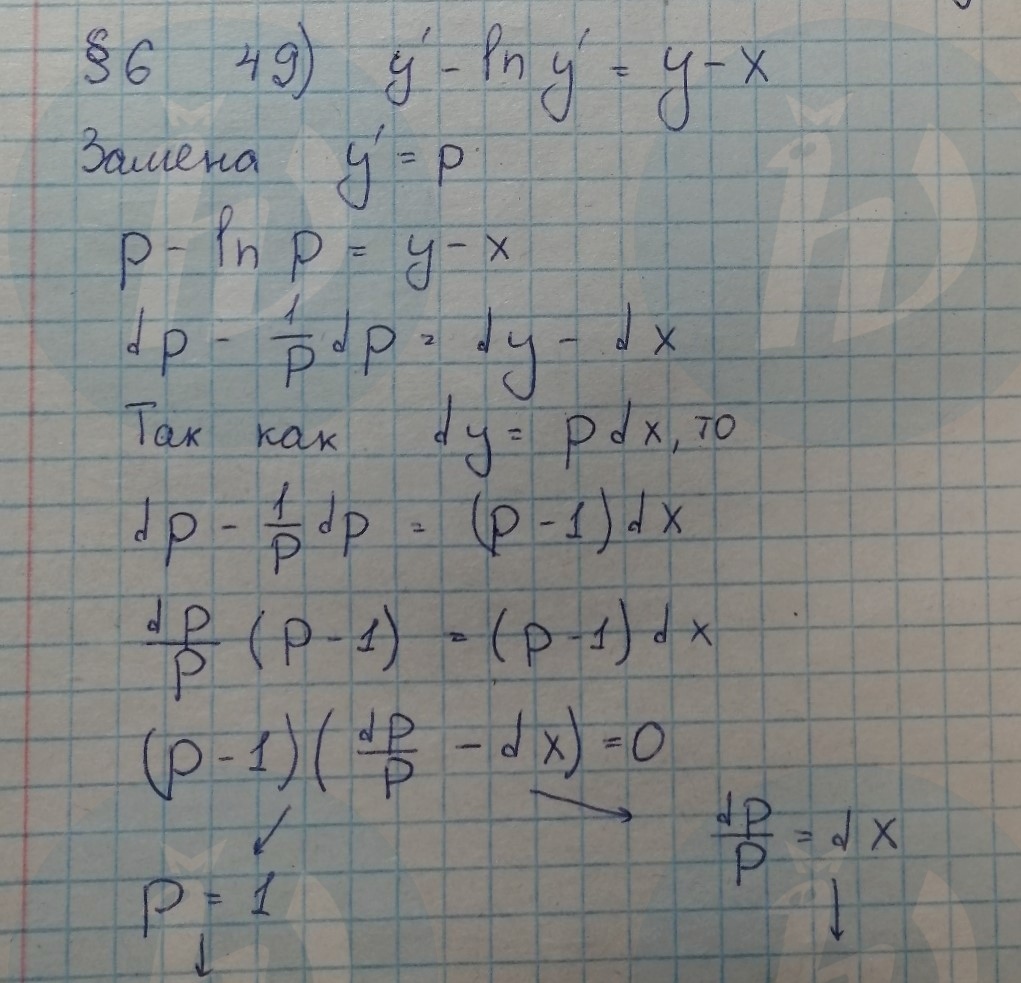 §6 49) y' - ln y' = y - x
Замена y' = p
p - ln p = y - x
dp - 1/p dp = dy - dx
Так как dy = p dx, то
dp - 1/p dp = (p - 1) dx
dp/p (p - 1) = (p - 1) dx
(p - 1) ( dp/p - dx) = 0
↙ → dp/p = dx
p = 1 ↓
↓